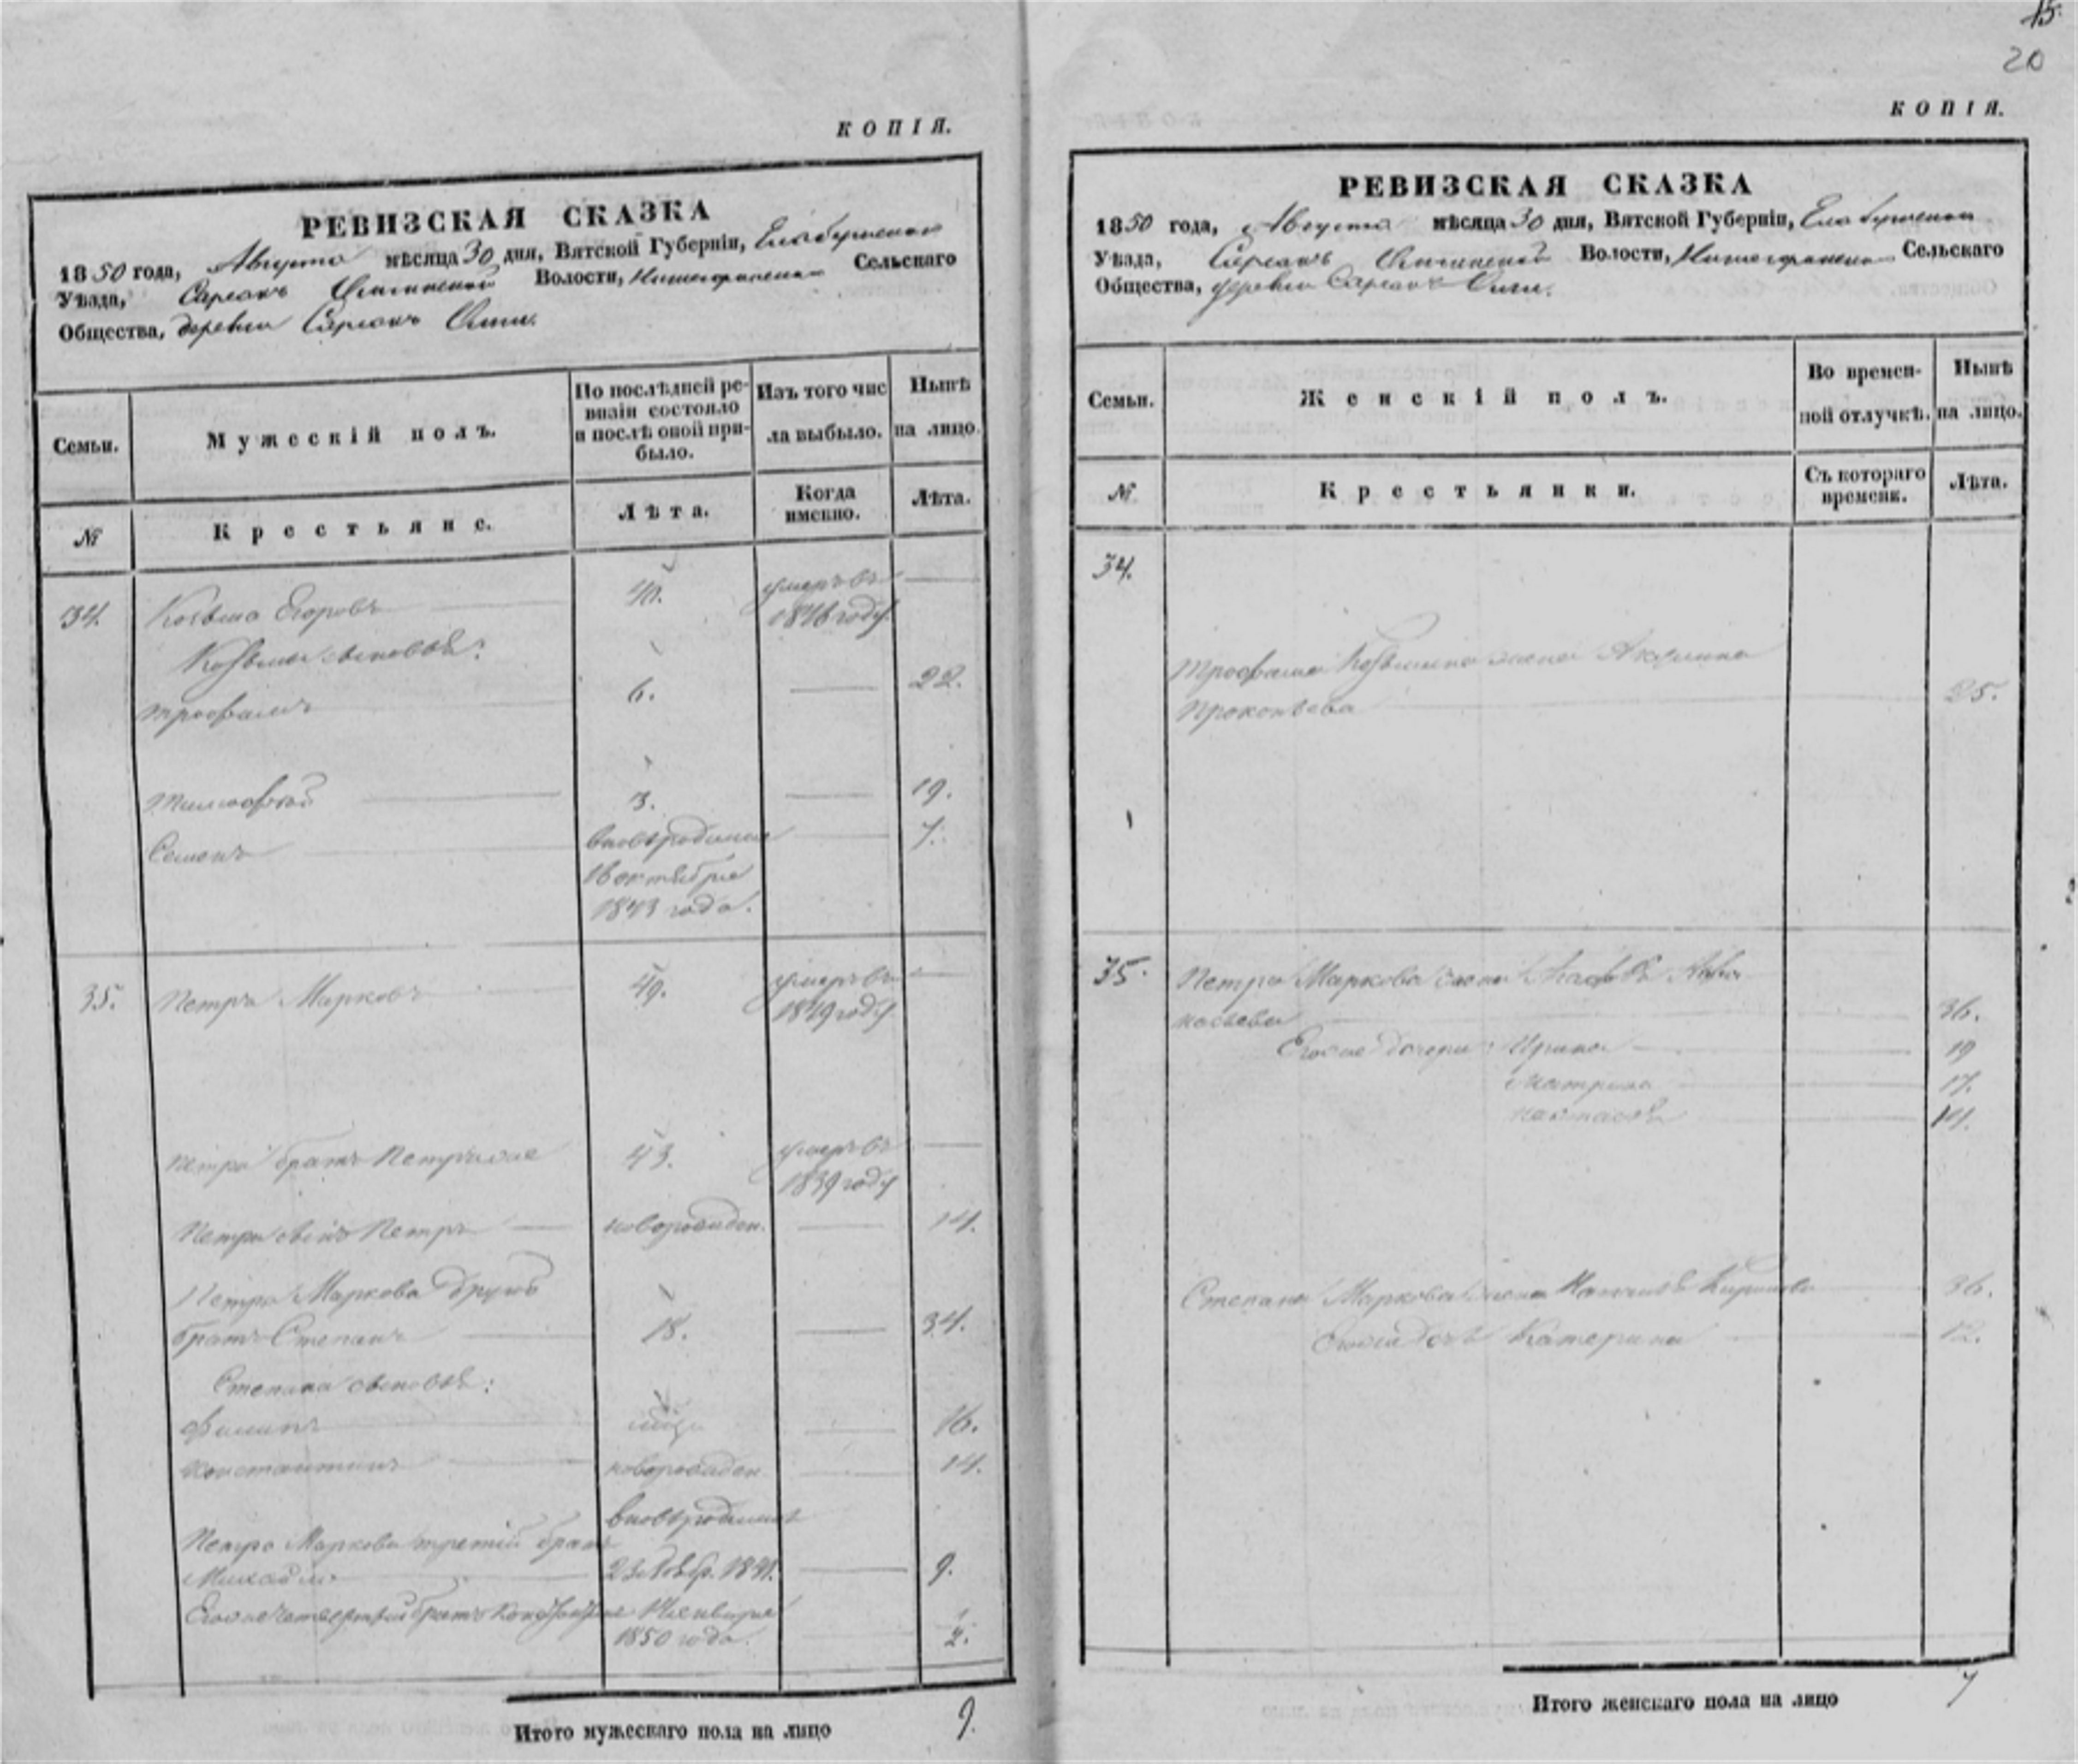 КОПІЯ.
РЕВИЗСКАЯ СКАЗКА
1850 года, Августа мѣсяца 30 дня, Вятской Губерніи,
Уѣзда, Волости, Сельскаго
Общества, деревни
Семьи.
Мужескій полъ.
По послѣдней ре-
визіи состояло
и послѣ оной при-
было.
Изъ того чис
ла выбыло.
Нынѣ
на лицо.
№
Крестьяне.
Лѣта.
Когда
именно.
Лѣта.
34. Козьма Егоровъ 40. умеръ въ
1846 году
Козьмы сыновья:
Трофимъ 6. 22.
Тимофей 3. 19.
Семенъ вновьродился 7.
16 октября
1843 года.
35. Петръ Марковъ 49. умеръ въ
1849 году
Петра братъ Петръ же 43. умеръ въ
1839 году
Петра сынъ Петръ новорожден. 14.
Петра Маркова другой
братъ Степанъ 18. 34.
Степана сыновья:
Филипъ 16.
Константинъ новорожден 14.
вновьродился
Петра Маркова третій братъ
Михайло 1841. 9.
Его же четвертый братъ Января
1850 года. 1/2.
Итого мужескаго пола на лицо 9.
15.
20
КОПІЯ.
РЕВИЗСКАЯ СКАЗКА
1850 года, Августа мѣсяца 30 дня, Вятской Губерніи,
Уѣзда, Волости, Сельскаго
Общества, деревни
Семьи.
Женскій полъ.
Во времен-
ной отлучкѣ.
Нынѣ
на лицо.
№
Крестьянки.
Съ котораго
времени.
Лѣта.
34.
Трофима Козьмина жена Акулина
Прокопьева 25.
35. Петра Маркова жена
36.
Его же дочери: Ирина 19
Матрена 17.
Настасья 14.
Степана Маркова жена 36.
Его же дочь Катерина 12.
Итого женскаго пола на лицо 7